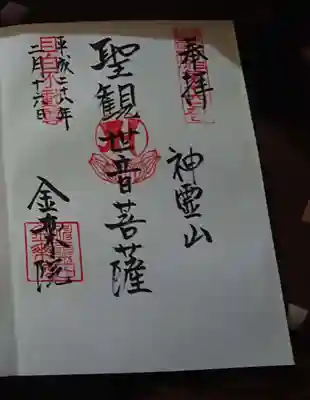 奉拝
神霊山
聖観世音菩薩
平成二十八年
二月十六日
目白不動尊
金乗院